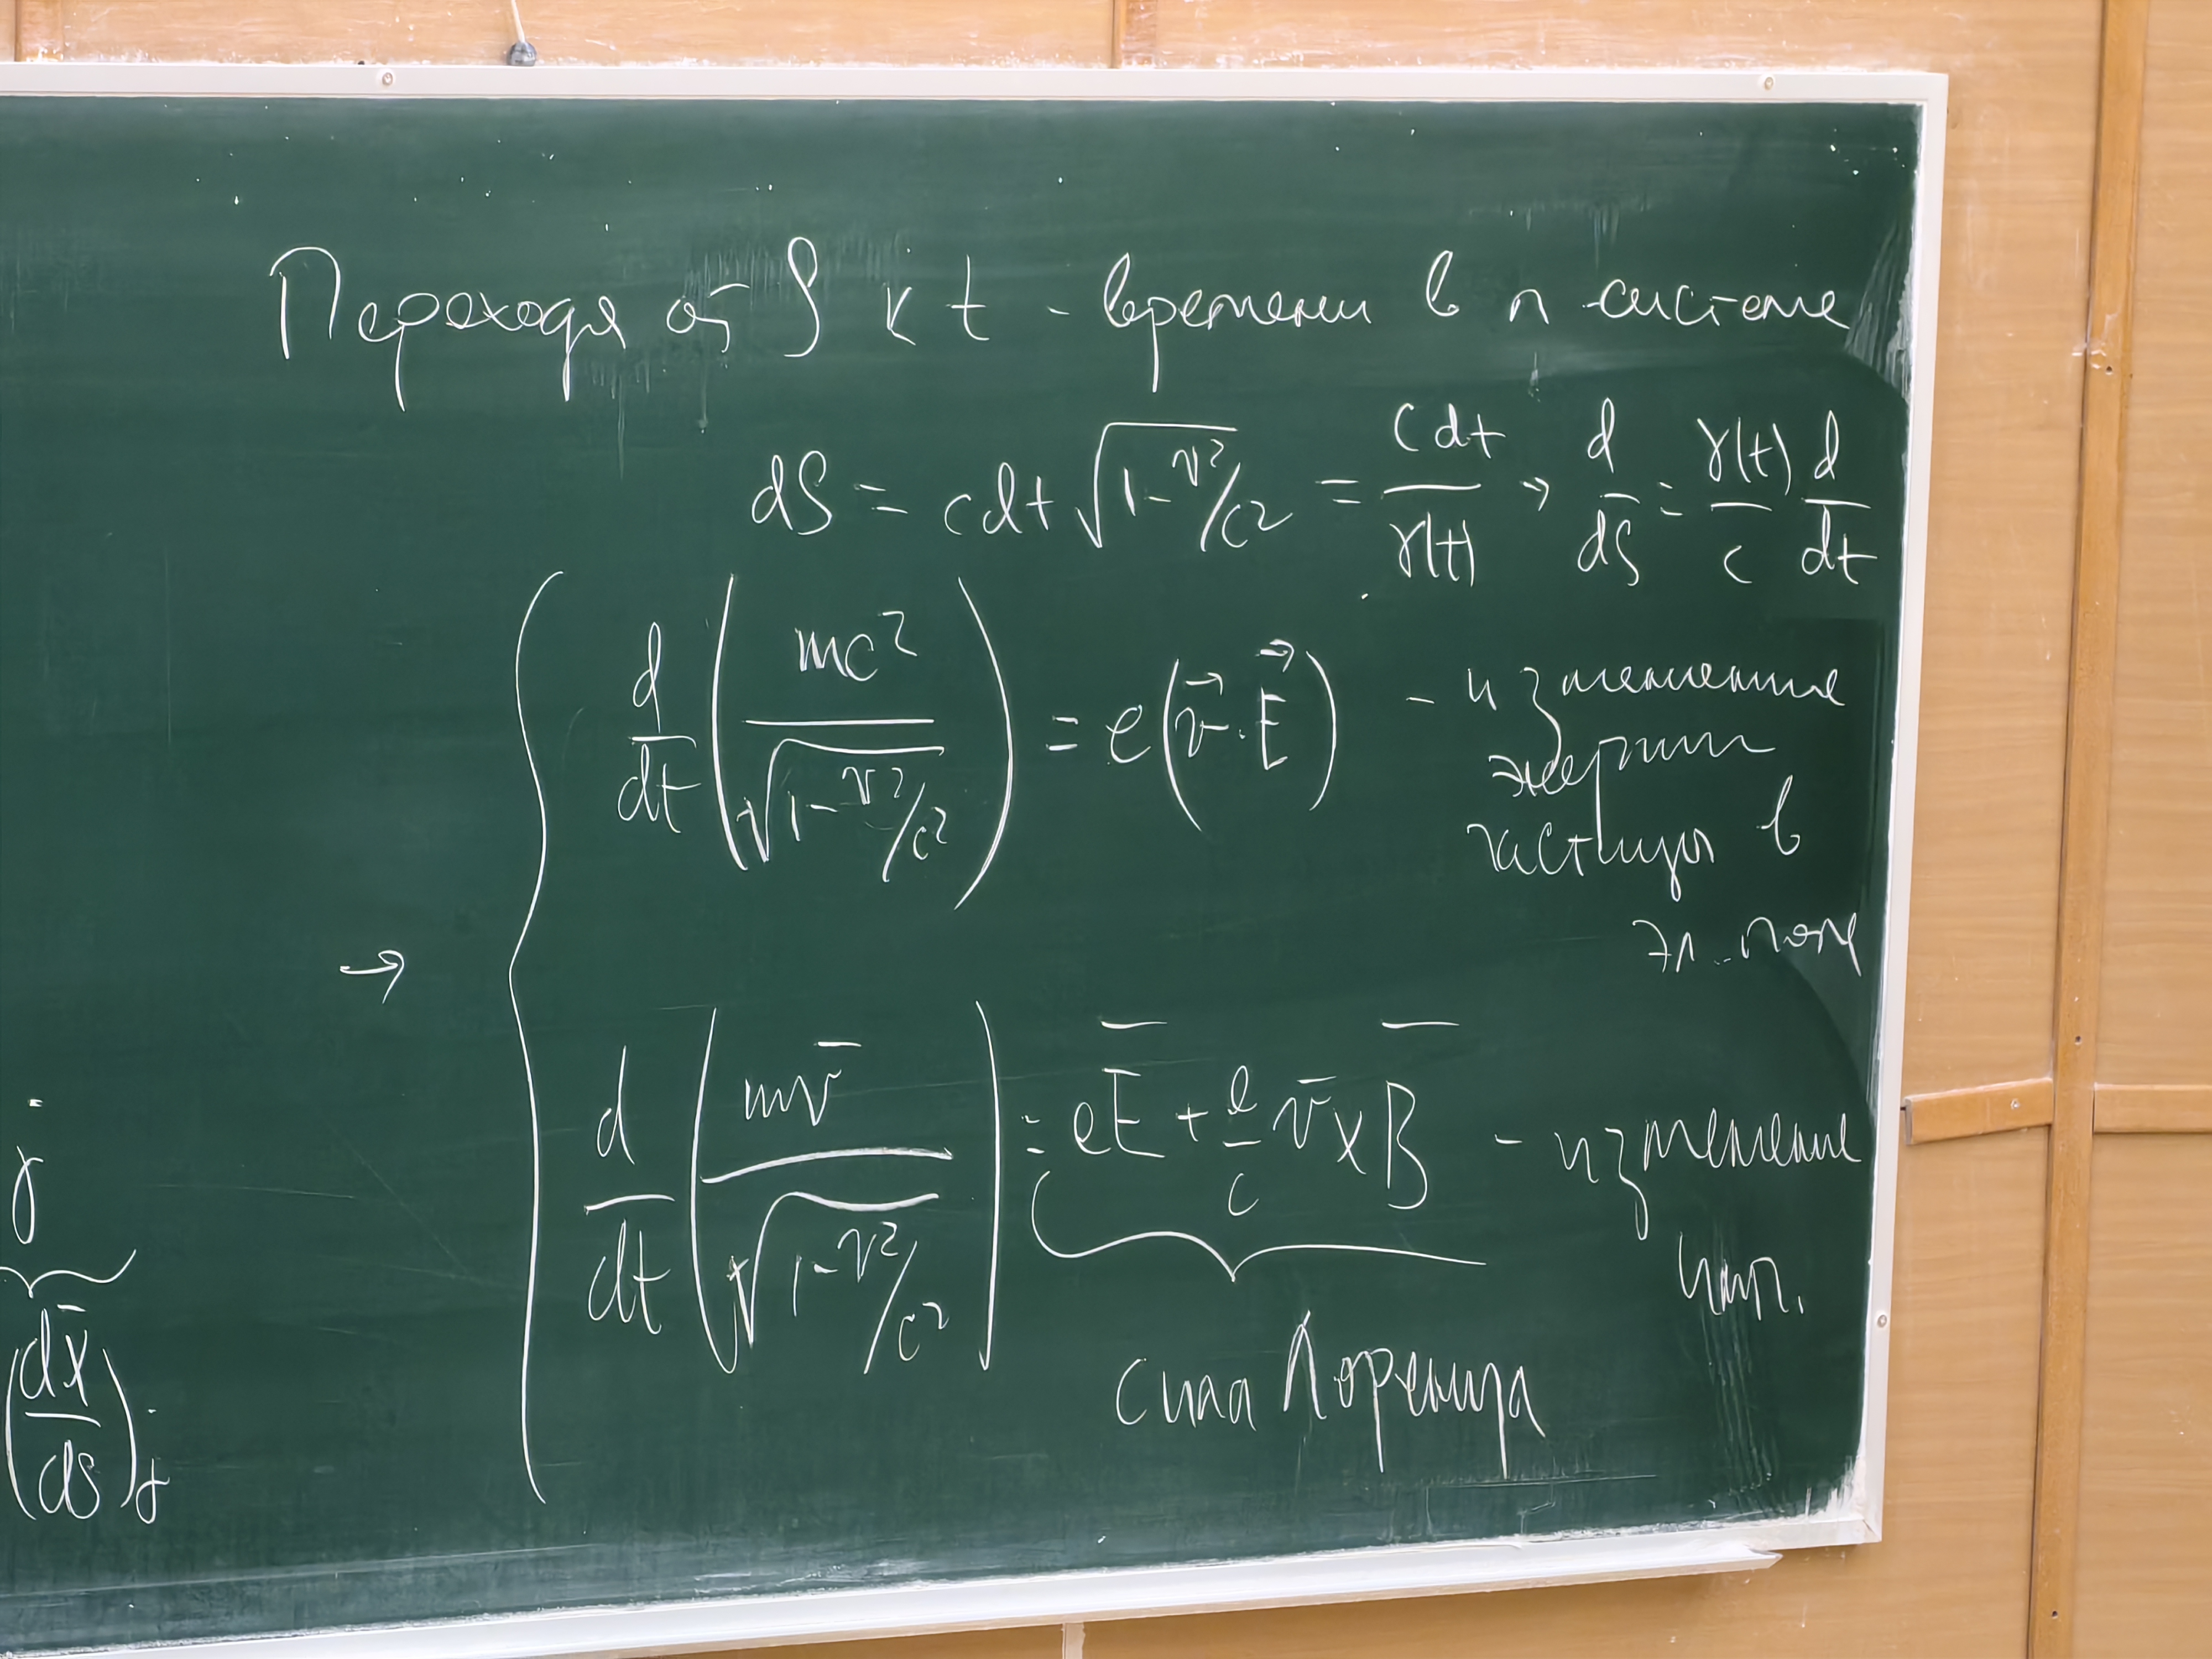 Переходя от S к t - времени в л системе
dS = cdt √(1-v²/c²) = cdt/γ(t) → d/dS = γ(t)/c d/dt
d/dt (mc²/√(1-v²/c²)) = e(v⃗·E⃗) - изменение
энергии
частицы в
эл. поле
→
d/dt (mv̄/√(1-v²/c²)) = eE̅ + e/c v̄×B̅ - изменение
имп.
сила Лоренца
j
(dx̄/ds)j